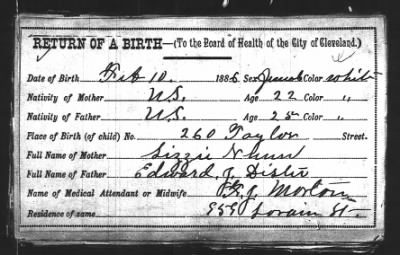 RETURN OF A BIRTH—(To the Board of Health of the City of Cleveland.)
Date of Birth Feb 10. 1886 Sex Female Color white
Nativity of Mother U.S. Age 22 Color "
Nativity of Father U.S. Age 25 Color "
Place of Birth (of child) No. 260 Taylor Street.
Full Name of Mother Lizzie
Full Name of Father Edward J. Dister
Name of Medical Attendant or Midwife Morton
Residence of same Lorain St.